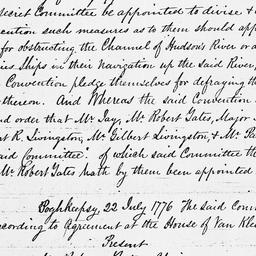 ecret Committee be appointed to divise &
ention such measures as to them should app
for obstructing the Channel of Hudson's River or a
ies Ships in their Navigation up the said River,
Convention pledge themselves for defraying th
thereon. And Whereas the said Convention
d order that Mr. Jay, Mr. Robert Yates, Major
rt R. Livingston, Mr. Gilbert Livingston, & Mr. Pa
aid Committee". of which said Committee th
Mr. Robert Yates hath by them been appointed
Poghkepsy, 22 July 1776. The said Com
ccording to Agreement at the House of Van Kle
Present